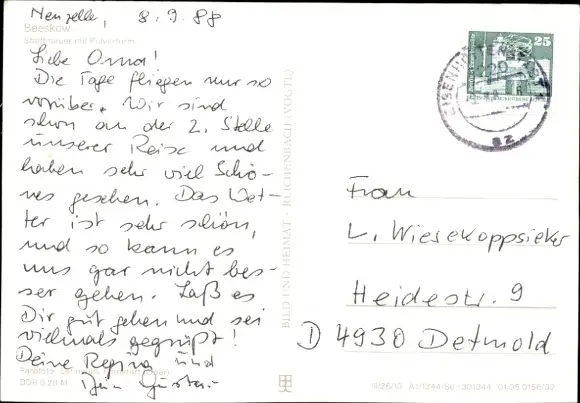 Neuzelle, 8.9.88
Beeskow
Stadtmauer mit Pulverturm
Liebe Oma!
Die Tage fliegen nur so
vorüber. Wir sind
schon an der 2. Stelle
unserer Reise und
haben sehr viel Schö-
nes gesehen. Das Wet-
ter ist sehr schön,
und so kann es
uns gar nicht bes-
ser gehen. Laß es
Dir gut gehen und sei
vielmals gegrüßt!
Deine Regina und
Dein Gustav.
DDR 0,20 M
BILD UND HEIMAT · REICHENBACH (VOGTL)
25
EISENHÜTTENSTADT
az
Frau
L. Wiesekoppsieker
Heidestr. 9
D 4930 Detmold
01 05 0156/02